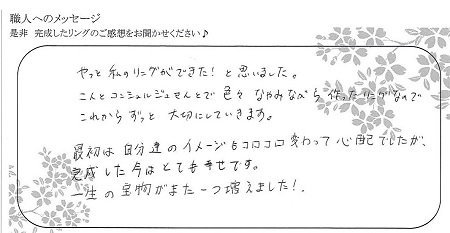 職人へのメッセージ
是非 完成したリングのご感想をお聞かせください♪
やっと私のリングができた!と思いました。
こんとコンシェルジュさんとで色々なやみながら作ったリングなので
これからずっと大切にしていきます。
最初は自分達のイメージもコロコロ変わって心配でしたが、
完成した今はとても幸せです。
一生の宝物がまた一つ増えました!.